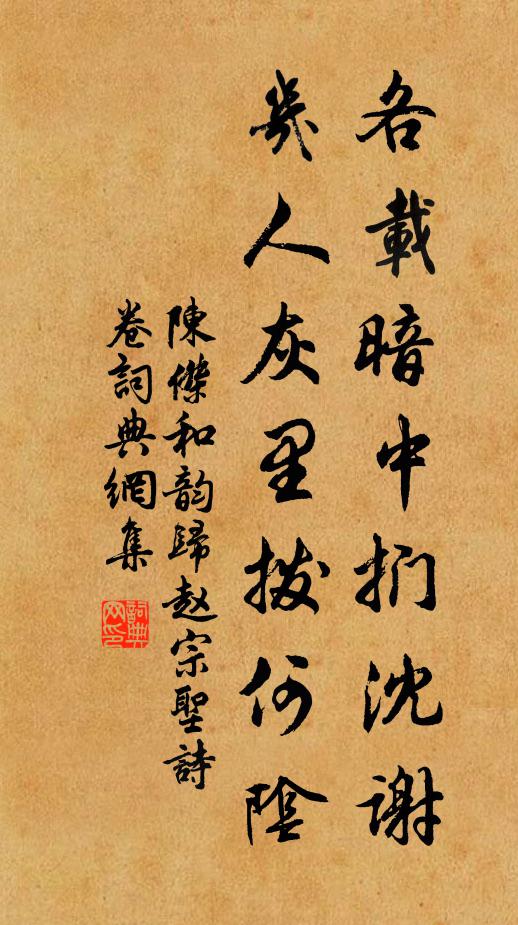 各載暗中捫沈謝
幾人灰里撥何陰
陳傑和韵歸赵宗聖詩
卷詞典網集
詞典
网印